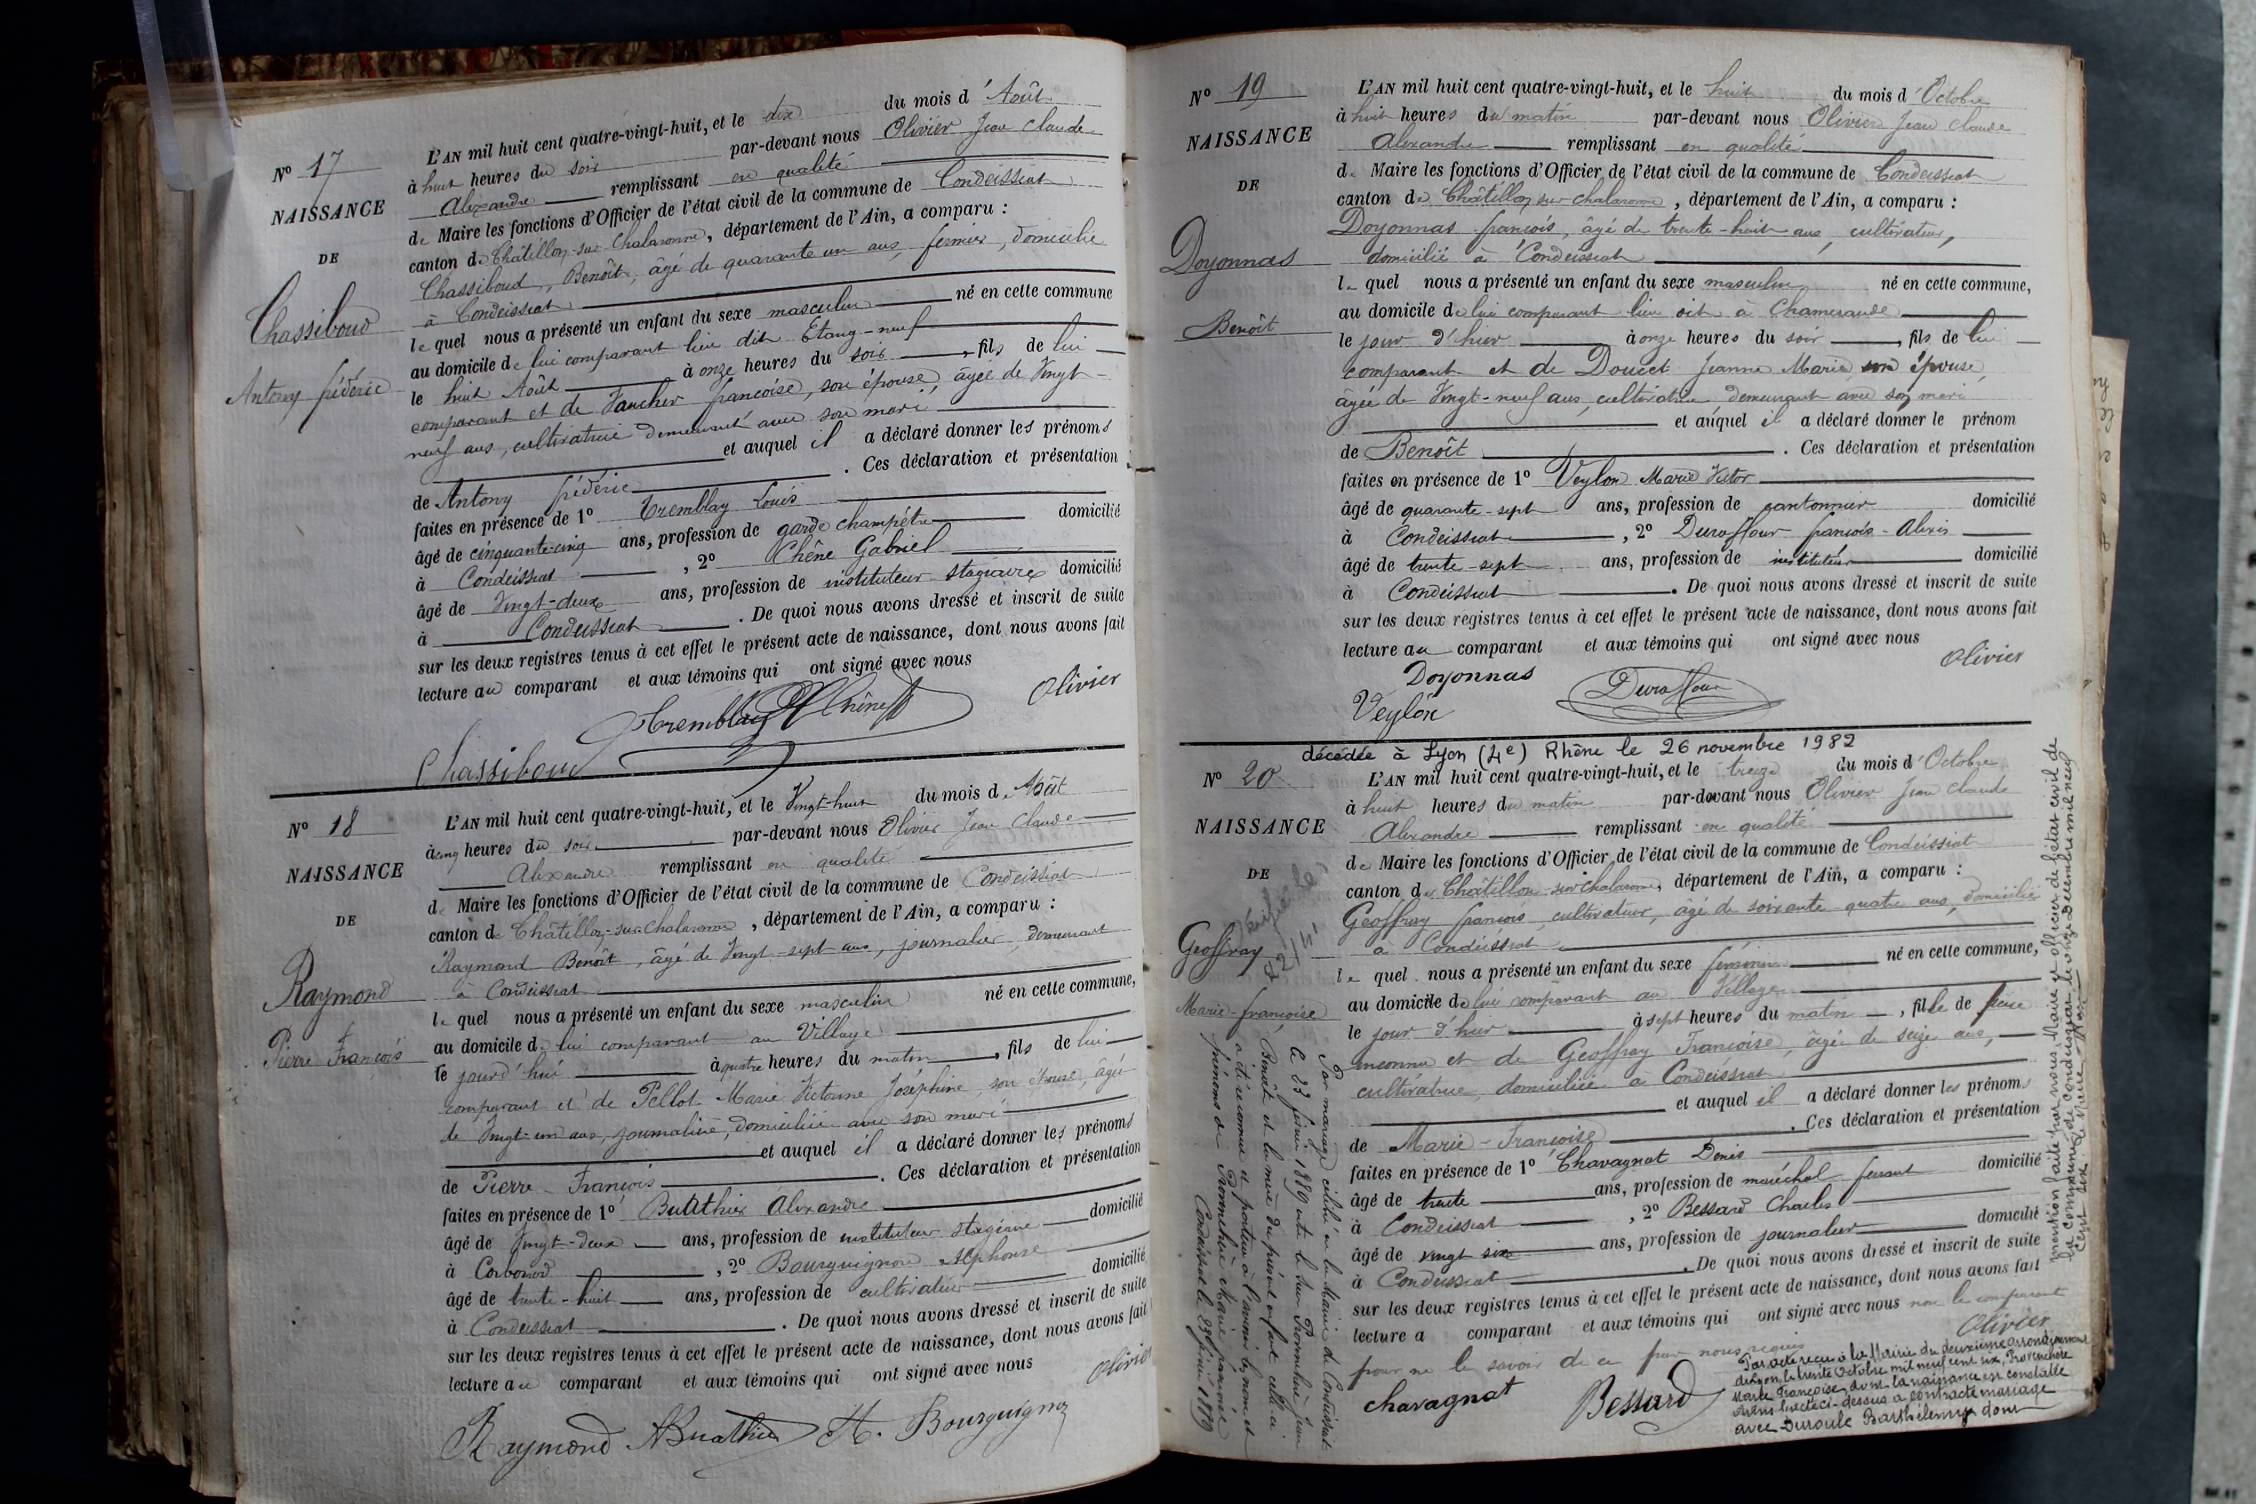 N° 17
NAISSANCE
DE
Chassiboud
Antony frédéric
L'AN mil huit cent quatre-vingt-huit, et le dix du mois d'Août
à huit heures du soir par-devant nous Olivier Jean Claude
Alexandre remplissant en qualité
de Maire les fonctions d'Officier de l'état civil de la commune de Condeissiat
canton de Châtillon-sur-Chalaronne, département de l'Ain, a comparu :
Chassiboud, Benoît, âgé de quarante un ans, fermier, domicilié
à Condeissiat
lequel nous a présenté un enfant du sexe masculin né en cette commune
au domicile de lui comparant lieu dit Etang-neuf
le huit Août à onze heures du soir, fils de lui
comparant et de Vaucher françoise, son épouse, âgée de Vingt-
neuf ans, cultivatrice demeurant avec son mari
et auquel il a déclaré donner les prénoms
de Antony frédéric. Ces déclaration et présentation
faites en présence de 1° Tremblay Louis
âgé de cinquante-cinq ans, profession de garde champêtre domicilié
à Condeissiat, 2° Chêne Gabriel
âgé de Vingt-deux ans, profession de instituteur stagiaire domicilié
à Condeissiat. De quoi nous avons dressé et inscrit de suite
sur les deux registres tenus à cet effet le présent acte de naissance, dont nous avons fait
lecture au comparant et aux témoins qui ont signé avec nous
Olivier
Tremblay Chêne
Chassiboud
N° 18
NAISSANCE
DE
Raymond
Pierre François
L'AN mil huit cent quatre-vingt-huit, et le Vingt-huit du mois d'Août
à cinq heures du soir par-devant nous Olivier Jean Claude
Alexandre remplissant en qualité
de Maire les fonctions d'Officier de l'état civil de la commune de Condeissiat
canton de Châtillon-sur-Chalaronne, département de l'Ain, a comparu :
Raymond Benoît, âgé de Vingt-sept ans, journalier, demeurant
à Condeissiat
lequel nous a présenté un enfant du sexe masculin né en cette commune,
au domicile de lui comparant au Village
le jourd'hui à quatre heures du matin, fils de lui
comparant et de Pellot Marie Victorine Joséphine, son épouse, âgée
de Vingt-un ans, journalière, domiciliée avec son mari
et auquel il a déclaré donner les prénoms
de Pierre-François. Ces déclaration et présentation
faites en présence de 1° Buathier Alexandre
âgé de Vingt-deux ans, profession de instituteur stagiaire domicilié
à Corbonod, 2° Bourguignon Alphonse
âgé de trente-huit ans, profession de cultivateur domicilié
à Condeissiat. De quoi nous avons dressé et inscrit de suite
sur les deux registres tenus à cet effet le présent acte de naissance, dont nous avons fait
lecture au comparant et aux témoins qui ont signé avec nous
Olivier
Raymond ABuathier A. Bourguignon
N° 19
NAISSANCE
DE
Doyonnas
Benoît
L'AN mil huit cent quatre-vingt-huit, et le huit du mois d'Octobre
à huit heures du matin par-devant nous Olivier Jean Claude
Alexandre remplissant en qualité
de Maire les fonctions d'Officier de l'état civil de la commune de Condeissiat
canton de Châtillon sur Chalaronne, département de l'Ain, a comparu :
Doyonnas françois, âgé de trente-huit ans, cultivateur,
domicilié à Condeissiat
lequel nous a présenté un enfant du sexe masculin né en cette commune,
au domicile de lui comparant lieu dit à Chamerande
le jour d'hier à onze heures du soir, fils de lui
comparant et de Doucet Jeanne Marie, son épouse,
âgée de Vingt-neuf ans, cultivatrice demeurant avec son mari
et auquel il a déclaré donner le prénom
de Benoît. Ces déclaration et présentation
faites en présence de 1° Veylon Marie Victor
âgé de quarante-sept ans, profession de cantonnier domicilié
à Condeissiat, 2° Duraffour françois-Alexis
âgé de trente-sept ans, profession de instituteur domicilié
à Condeissiat. De quoi nous avons dressé et inscrit de suite
sur les deux registres tenus à cet effet le présent acte de naissance, dont nous avons fait
lecture au comparant et aux témoins qui ont signé avec nous
Olivier
Doyonnas Duraffour
Veylon
décédée à Lyon (4e) Rhône le 26 novembre 1982
N° 20
NAISSANCE
DE
Geoffray
Marie-françoise
L'AN mil huit cent quatre-vingt-huit, et le treize du mois d'Octobre
à huit heures du matin par-devant nous Olivier Jean Claude
Alexandre remplissant en qualité
de Maire les fonctions d'Officier de l'état civil de la commune de Condeissiat
canton de Châtillon-sur-Chalaronne, département de l'Ain, a comparu :
Geoffray françois, cultivateur, âgé de soixante quatre ans, domicilié
à Condeissiat
lequel nous a présenté un enfant du sexe féminin né en cette commune,
au domicile de lui comparant au Village
le jour d'hier à sept heures du matin, fille de père
inconnu et de Geoffray Françoise, âgée de seize ans,
cultivatrice, domiciliée à Condeissiat
et auquel il a déclaré donner les prénoms
de Marie-Françoise. Ces déclaration et présentation
faites en présence de 1° Chavagnat Denis
âgé de trente ans, profession de maréchal ferrant domicilié
à Condeissiat, 2° Bessard Charles
âgé de vingt six ans, profession de journalier domicilié
à Condeissiat. De quoi nous avons dressé et inscrit de suite
sur les deux registres tenus à cet effet le présent acte de naissance, dont nous avons fait
lecture a comparant et aux témoins qui ont signé avec nous non le comparant
pour ne le savoir de ce par nous requis
Olivier
Chavagnat Bessard
Par mariage célébré en la Mairie de Condeissiat
le 23 février 1889 entre le sieur Jean
Benoît et la mère du présent enfant celle-ci
a été reconnue et portera à l'avenir le nom et
prénoms de Marie françoise
Condeissiat le 23 février 1889
Par acte reçu à la Mairie du deuxième arrondissement
de Lyon, le trente Octobre mil neuf cent six,
Marie Françoise, dont la naissance est constatée
dans l'acte ci-dessus a contracté mariage
avec Duroule Barthélemy dont
mention faite par nous, Maire et officier de l'état civil de
la commune de Condeissiat le onze Décembre mil neuf
cent six. Le Maire